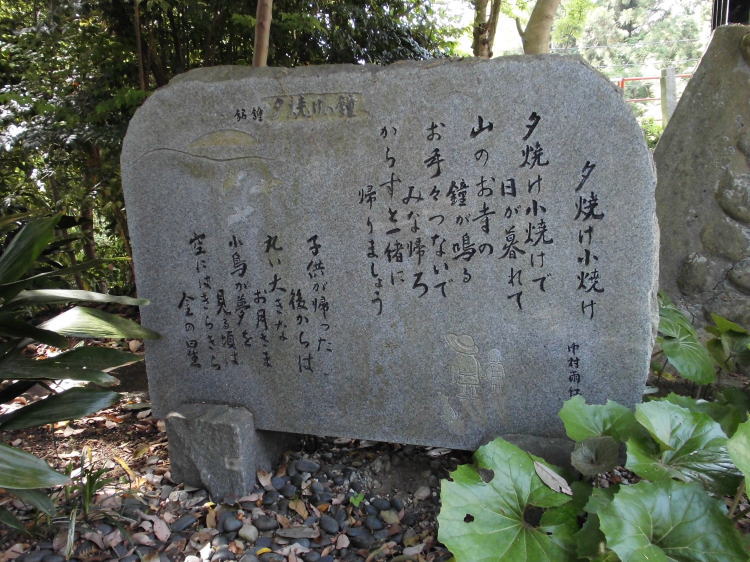 夕焼け小焼け
中村雨紅
夕焼け小焼けで
日が暮れて
山のお寺の
鐘が鳴る
お手々つないで
みな帰ろ
からすと一緒に
帰りましょう
子供が帰った
後からは
丸い大きな
お月さま
小鳥が夢を
見る頃は
空にはきらきら
金の星
夕焼けの鐘
鐘銘